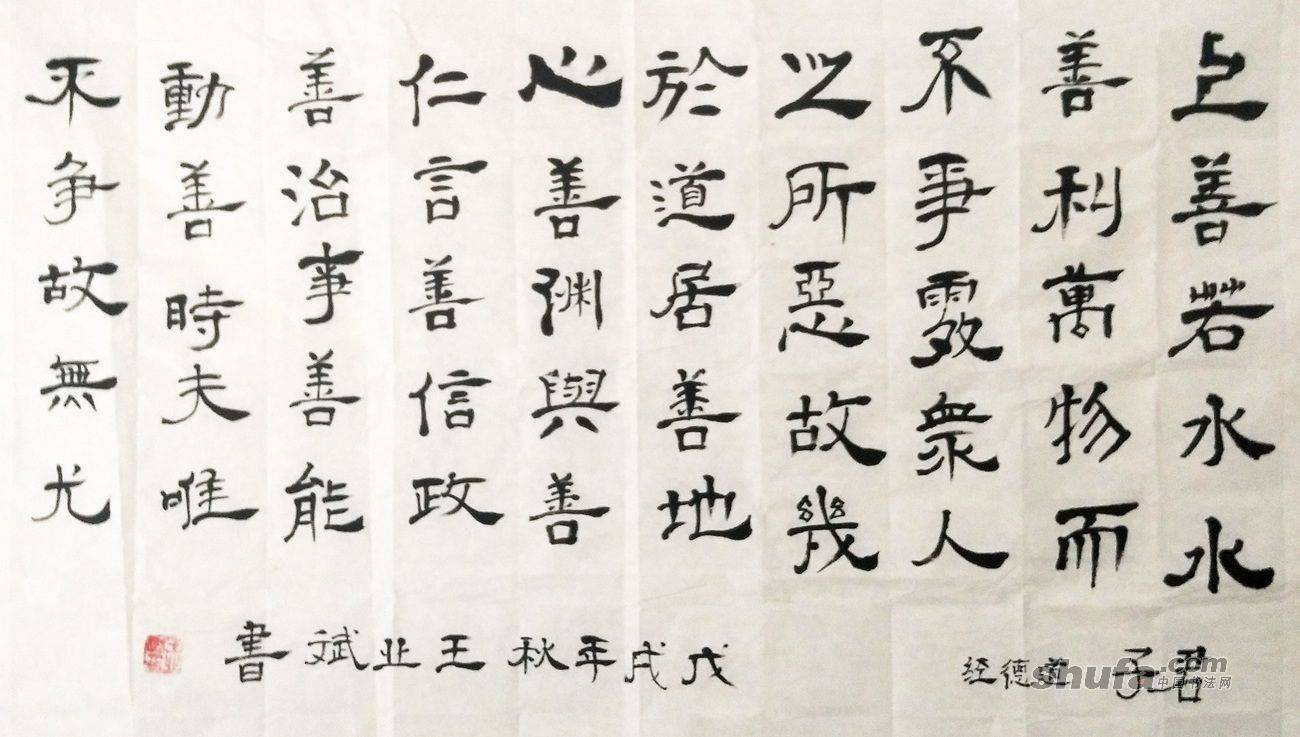 上善若水水
善利萬物而
不爭處衆人
之所惡故幾
於道居善地
心善渊與善
仁言善信政
善治事善能
動善時夫唯
不争故無尤
君子 道德经
戊戌年秋王业斌書
shufa.com
中国书法网